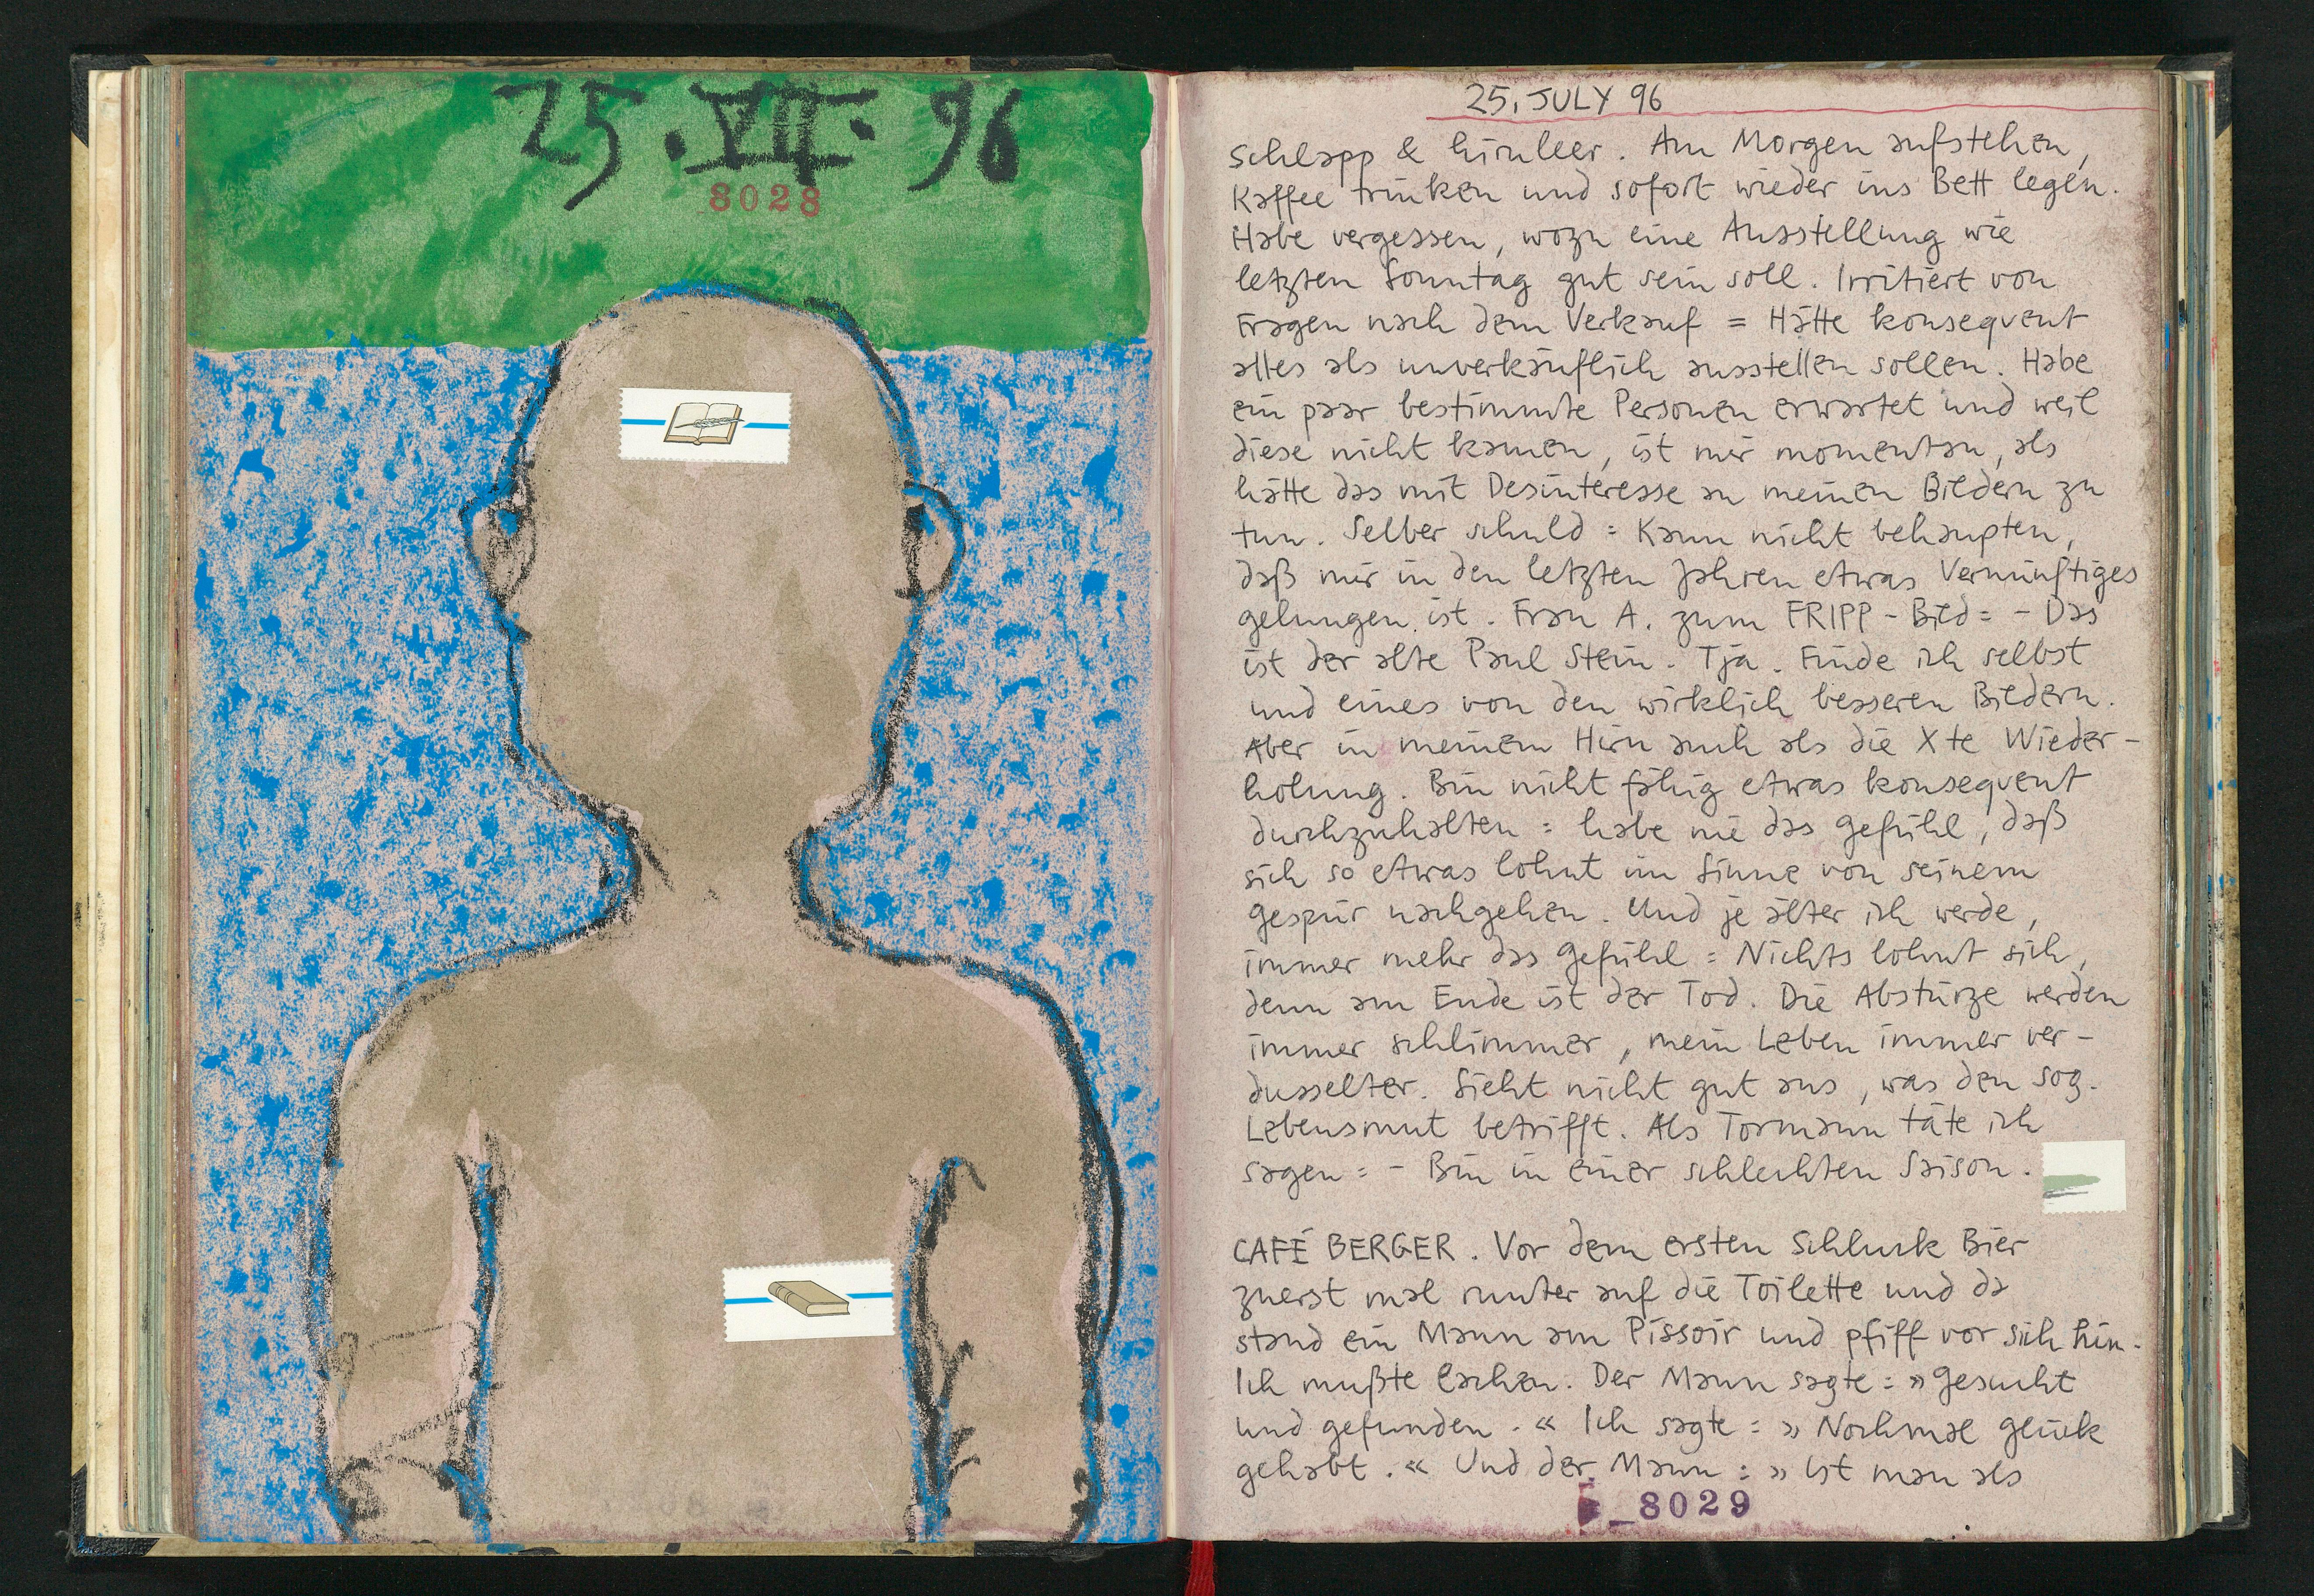 25. VII. 96
8028
25. JULY 96
Schlapp & hirnleer. Am Morgen aufstehen,
Kaffee trinken und sofort wieder ins Bett legen.
Habe vergessen, wozu eine Ausstellung wie
letzten Sonntag gut sein soll. Irritiert von
Fragen nach dem Verkauf = Hätte konsequent
alles als unverkäuflich ausstellen sollen. Habe
ein paar bestimmte Personen erwartet und weil
diese nicht kamen, ist mir momentan, als
hätte das mit Desinteresse an meinen Bildern zu
tun. Selber schuld = Kann nicht behaupten,
daß mir in den letzten Jahren etwas Vernünftiges
gelungen ist. Frau A. zum FRIPP-Bild = - Das
ist der alte Paul Stein. Tja. Finde ich selbst
und eines von den wirklich besseren Bildern.
Aber in meinem Hirn auch als die Xte Wieder-
holung. Bin nicht fähig etwas konsequent
durchzuhalten = habe nie das Gefühl, daß
sich so etwas lohnt im Sinne von seinem
Gespür nachgehen. Und je älter ich werde,
immer mehr das Gefühl = Nichts lohnt sich,
denn am Ende ist der Tod. Die Abstürze werden
immer schlimmer, mein Leben immer ver-
dusselter. Sieht nicht gut aus, was den sog.
Lebensmut betrifft. Als Tormann täte ich
sagen = - Bin in einer schlechten Saison.
CAFÉ BERGER. Vor dem ersten Schluck Bier
zuerst mal runter auf die Toilette und da
stand ein Mann am Pissoir und pfiff vor sich hin.
Ich mußte lachen. Der Mann sagte = » Gesucht
und gefunden. « Ich sagte = » Nochmal Glück
gehabt. « Und der Mann = » Ist man als
8029